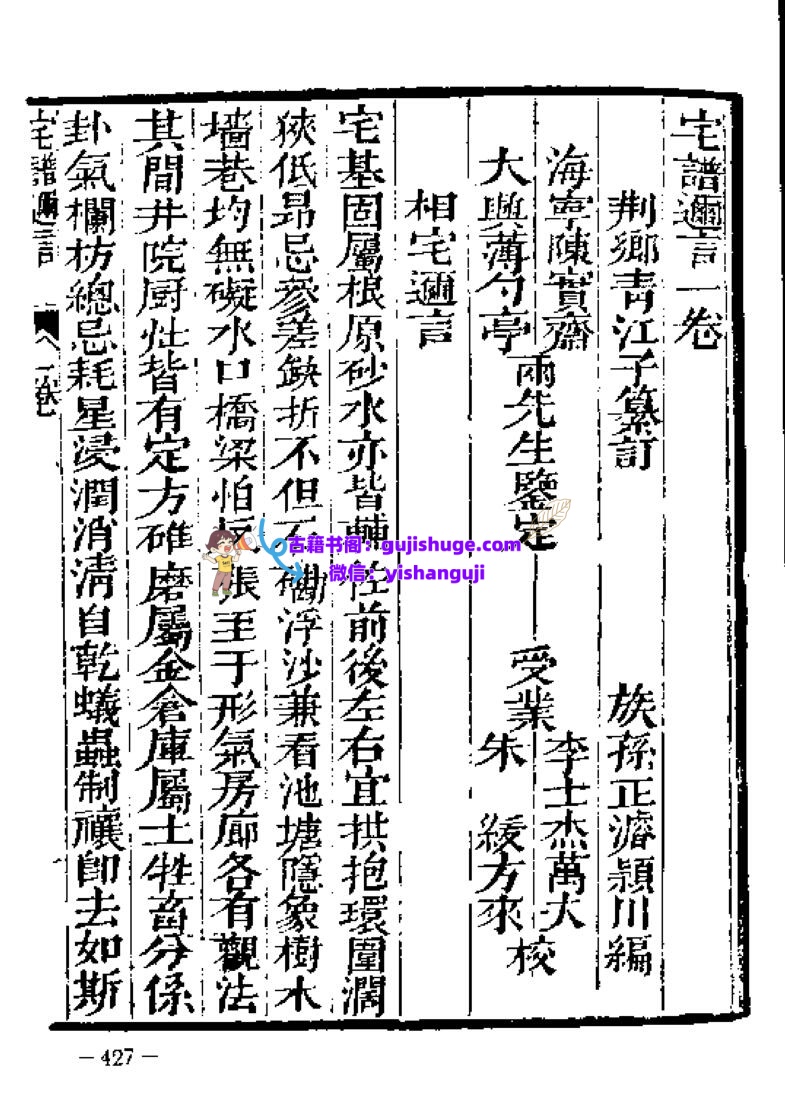 宅譜邇言一卷
荆鄉青江子纂訂 族孫正濬頴川編
海寧陳實齋
大興薄勺亭
兩先生鑒定
受業
李士杰萬大
朱 緩方來
校
相宅邇言
宅基固屬根原砂水亦皆輔 前後左右宜拱抱環圍濶
狹低昂忌參差缺折不但石 浮沙兼看池塘隱象樹木
墻巷均無礙水口橋梁怕反張至于形氣房廊各有觀法
其間井院厨灶皆有定方碓磨屬金倉庫屬土牲畜分係
卦氣欄枋總忌耗星浸潤消淸自乾蟻蟲制禳卽去如斯
宅譜邇言 一卷
古籍书阁：gujishuge.com
微信：yishanguji
— 427 —